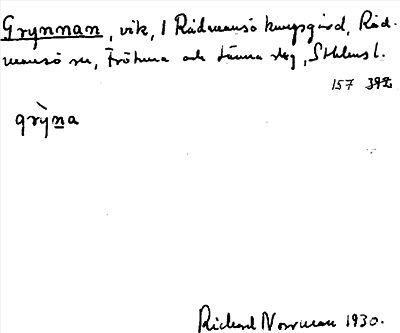 Grynnan, vik, 1 Rådmansö kungsgård, Råd-
mansö sn, Frötuna och Länna skg, Sthlms l.
157 392
grỳna
Rickard Norrman 1930.